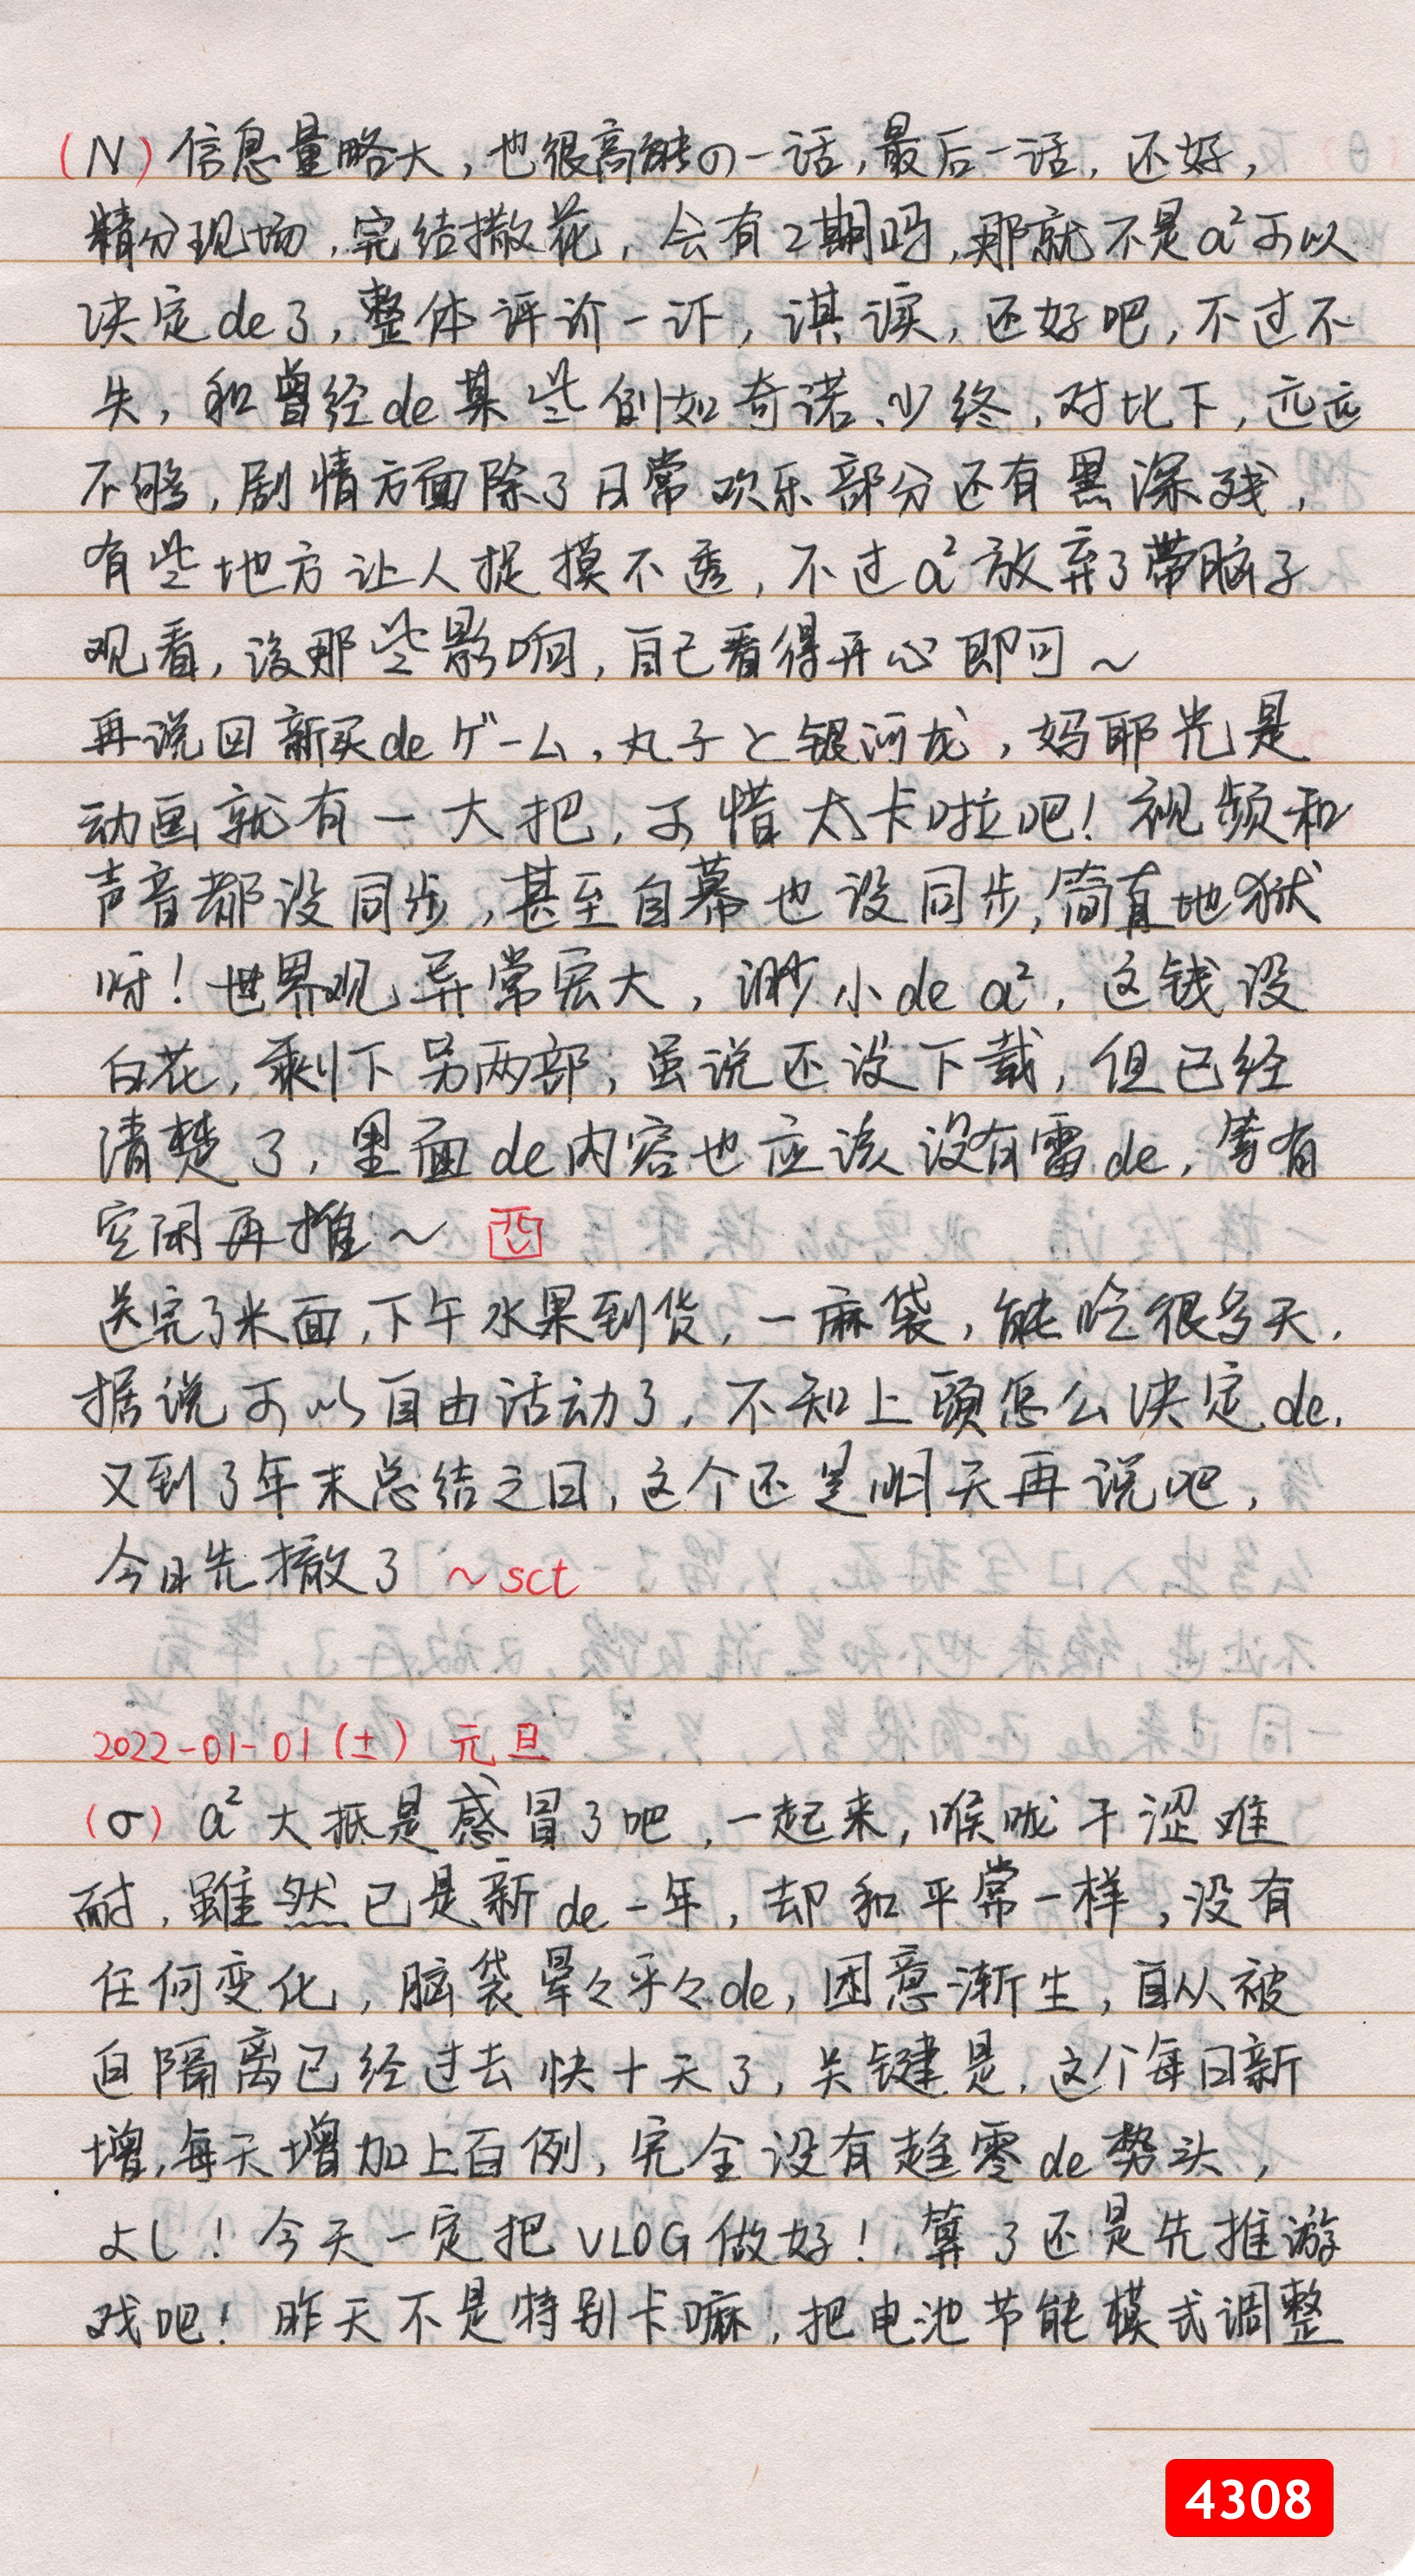 (N) 信息量略大，也很高能の一话，最后一话，还好，
精分现场，完结撒花，会有2期吗，那就不是a²可以
决定de了，整体评价一下，淇淚，还好吧，不过不
失，和曾经de某些例如奇诺、少终，对比下，远远
不够，剧情方面除了日常欢乐部分还有黑深残，
有些地方让人捉摸不透，不过a²放弃了带脑子
观看，没那些影响，自己看得开心即可～
再说回新买deゲーム，丸子と银河龙，妈耶光是
动画就有一大把，可惜太卡啦吧！视频和
声音都没同步，甚至自幕也没同步，简直地狱
呀！世界观异常宏大，渺小de a²，这钱没
白花，剩下另两部，虽说还没下载，但已经
清楚了，里面de内容也应该没有雷de，等有
空闲再推～
送完了米面，下午水果到货，一麻袋，能吃很多天，
据说可以自由活动了，不知上頭怎么决定de，
又到了年末总结之日，这个还是明天再说吧，
今日先撤了 ～sct
2022-01-01(土) 元旦
(σ) a²大抵是感冒了吧，一起来，喉咙干涩难
耐，雖然已是新de一年，却和平常一样，没有
任何变化，脑袋晕々乎々de，困意渐生，自从被
迫隔离已经过去快十天了，关键是，这个每日新
增，每天增加上百例，完全没有趋零de势头，
よし！今天一定把VLOG做好！算了还是先推游
戏吧！昨天不是特别卡嘛，把电池节能模式调整
4308